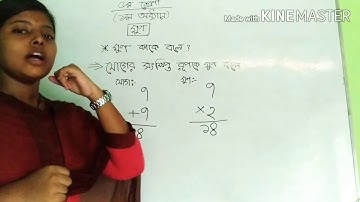 Made with KINEMASTER
৩য় শ্রেণী
(১ম অধ্যায়)
গুণ
* গুণ কাকে বলে?
⇒ যোগের সংক্ষিপ্ত রূপকে গুণ বলে
যোগঃ- গুণঃ-
৭ ৭
+৭ ×২
১৪ ১৪